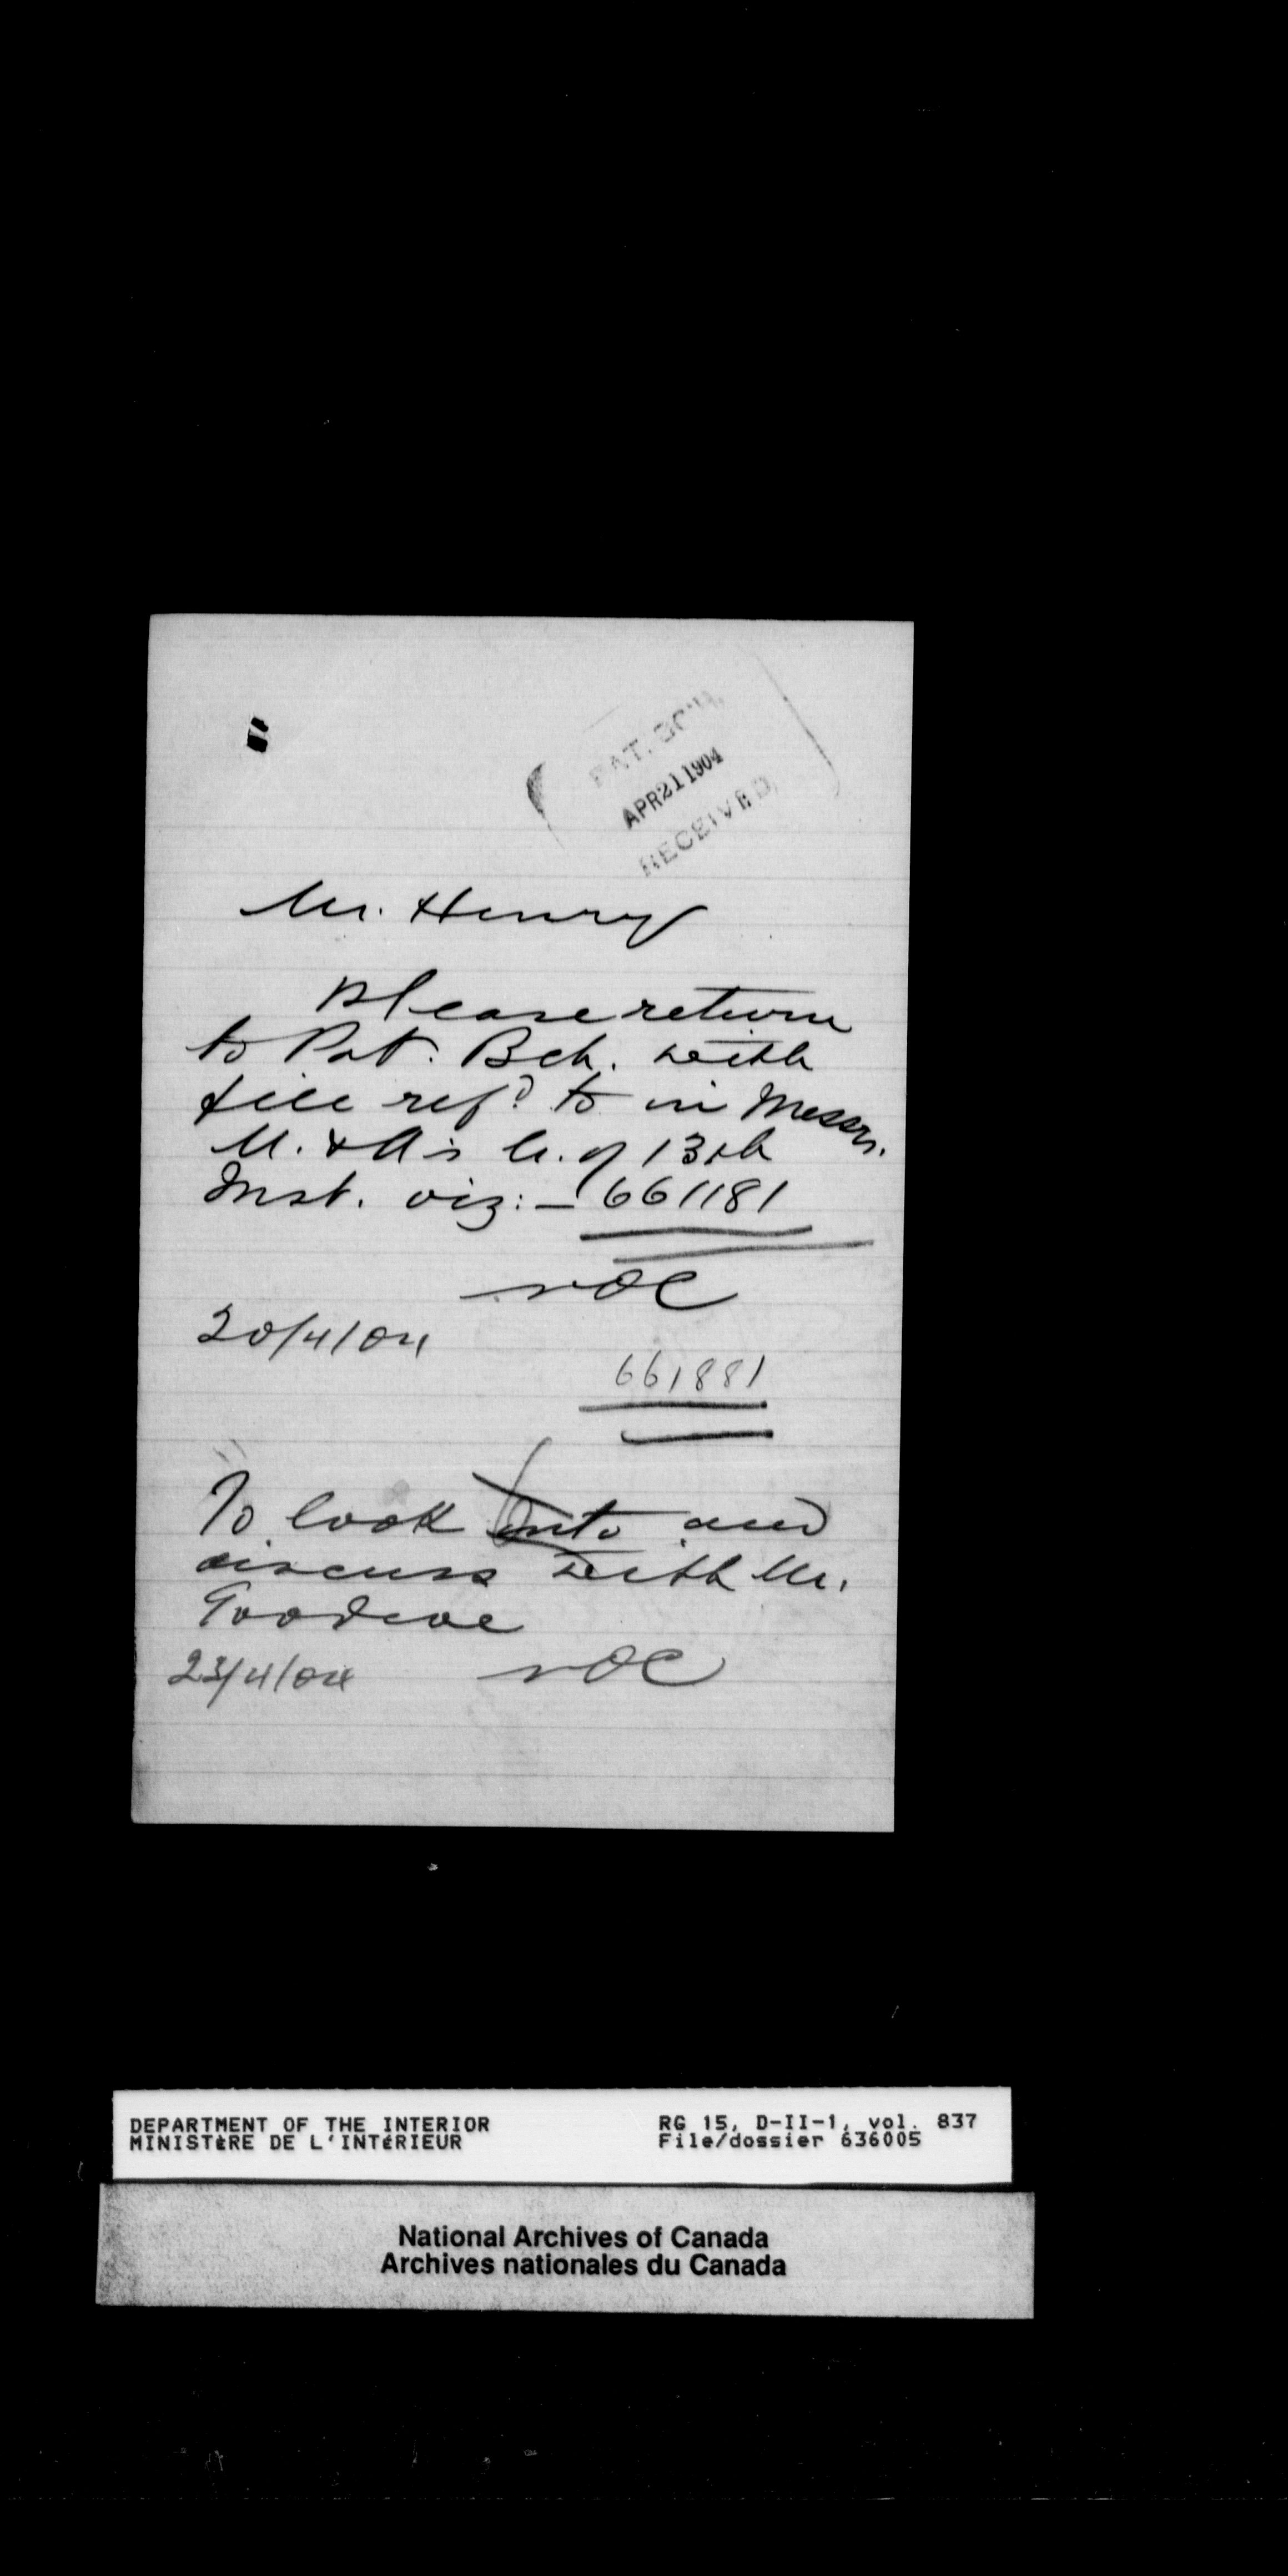 PAT. BCH.
APR 21 1904
RECEIVED
Mr. Henry
Please return
to Pat. Bch. with
file refd to in Messrs.
M. & A's L. of 13th
Inst. viz:- 661181
NOC
20/4/04
661881
To look into and
discuss with Mr.
Goodeve
23/4/04 NOC
DEPARTMENT OF THE INTERIOR RG 15, D-II-1, vol. 837
MINISTÈRE DE L'INTÉRIEUR File/dossier 636005
National Archives of Canada
Archives nationales du Canada